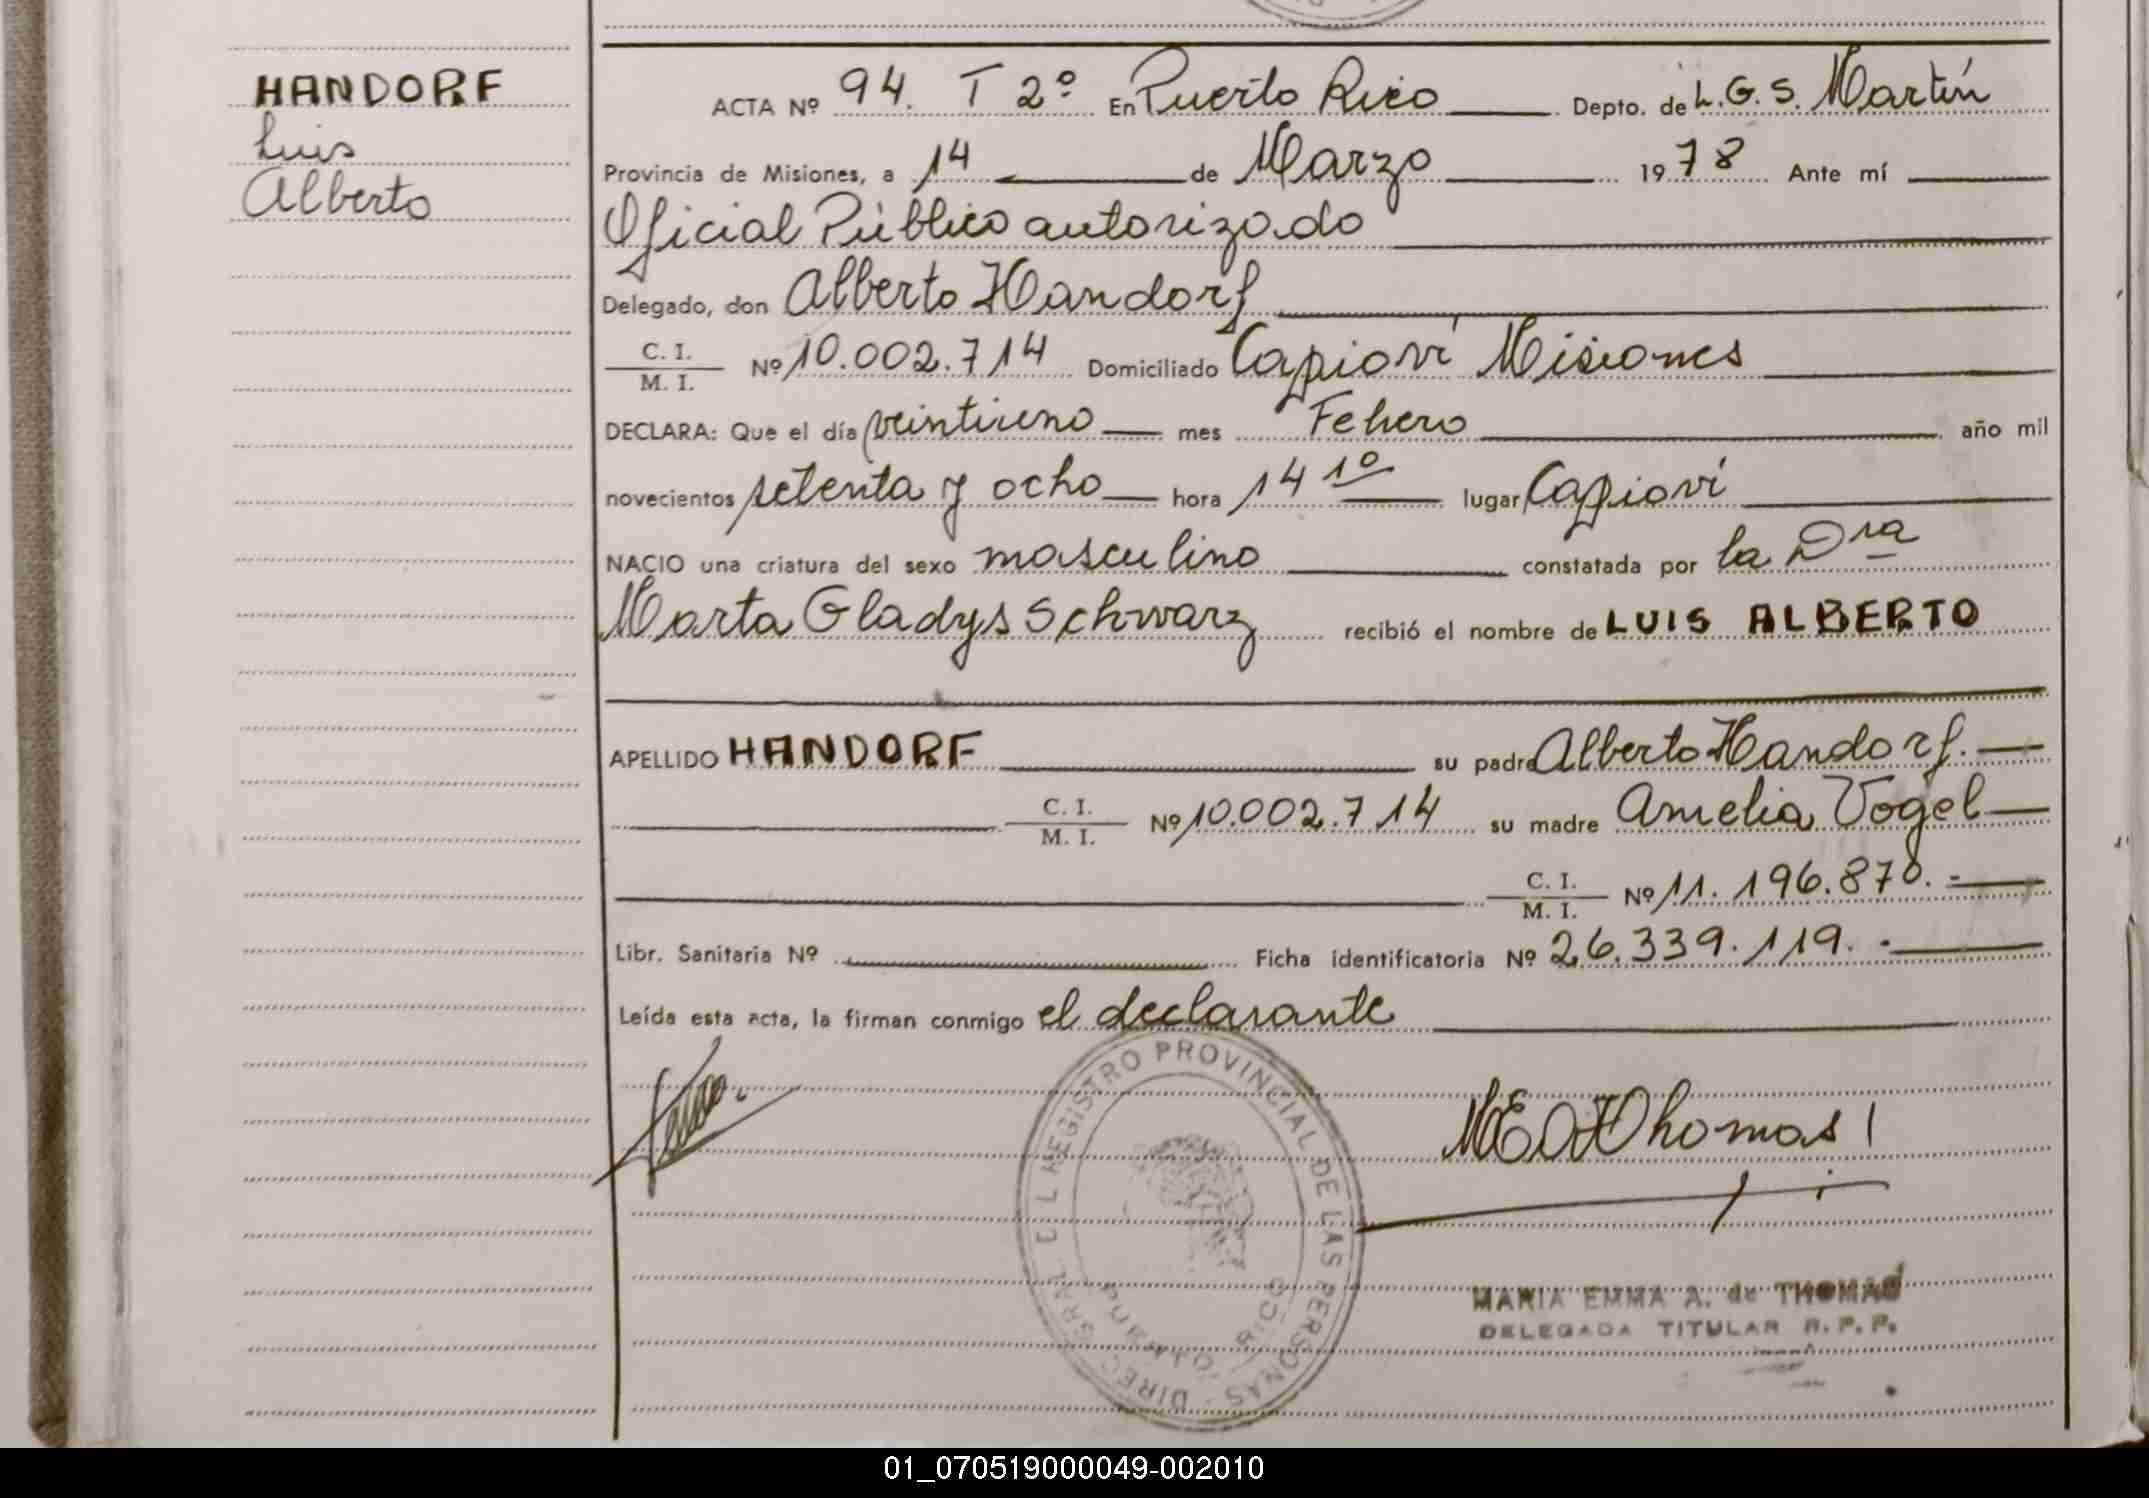 HANDORF
Luis
Alberto
ACTA Nº 94. T 2º En Puerto Rico Depto. de L.G.S. Martín
Provincia de Misiones, a 14 de Marzo 1978 Ante mí
Oficial Público autorizado
Delegado, don Alberto Handorf
C. I.
M. I. Nº 10.002.714 Domiciliado Capioví Misiones
DECLARA: Que el día veintiuno mes Febrero año mil
novecientos setenta y ocho hora 14 10 lugar Capioví
NACIO una criatura del sexo masculino constatada por la Dra
Marta Gladys Schwarz recibió el nombre de LUIS ALBERTO
APELLIDO HANDORF su padre Alberto Handorf.
C. I.
M. I. Nº 10.002.714 su madre Amelia Vogel
C. I.
M. I. Nº 11.196.870.
Libr. Sanitaria Nº Ficha identificatoria Nº 26.339.119.
Leída esta acta, la firman conmigo el declarante
DIREC. GRAL. DEL REGISTRO PROVINCIAL DE LAS PERSONAS
PUERTO RICO
Thomas
MARIA EMMA A. de THOMAS
DELEGADA TITULAR R. P. P.
01_070519000049-002010